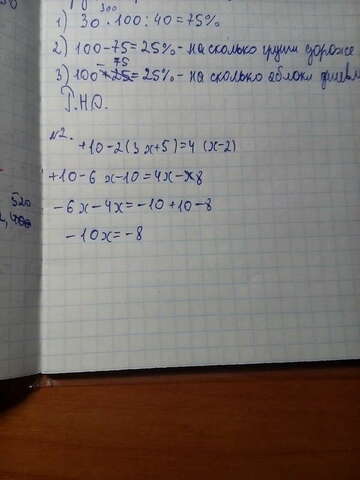 300
1) 30 · 100 : 40 = 75%
2) 100 - 75 = 25% - на сколько груши дороже
3) 100 - 75 = 25% - на сколько яблоки
№2.
+10-2(3x+5)=4(x-2)
+10-6x-10=4x-8
-6x-4x=-10+10-8
-10x=-8
520